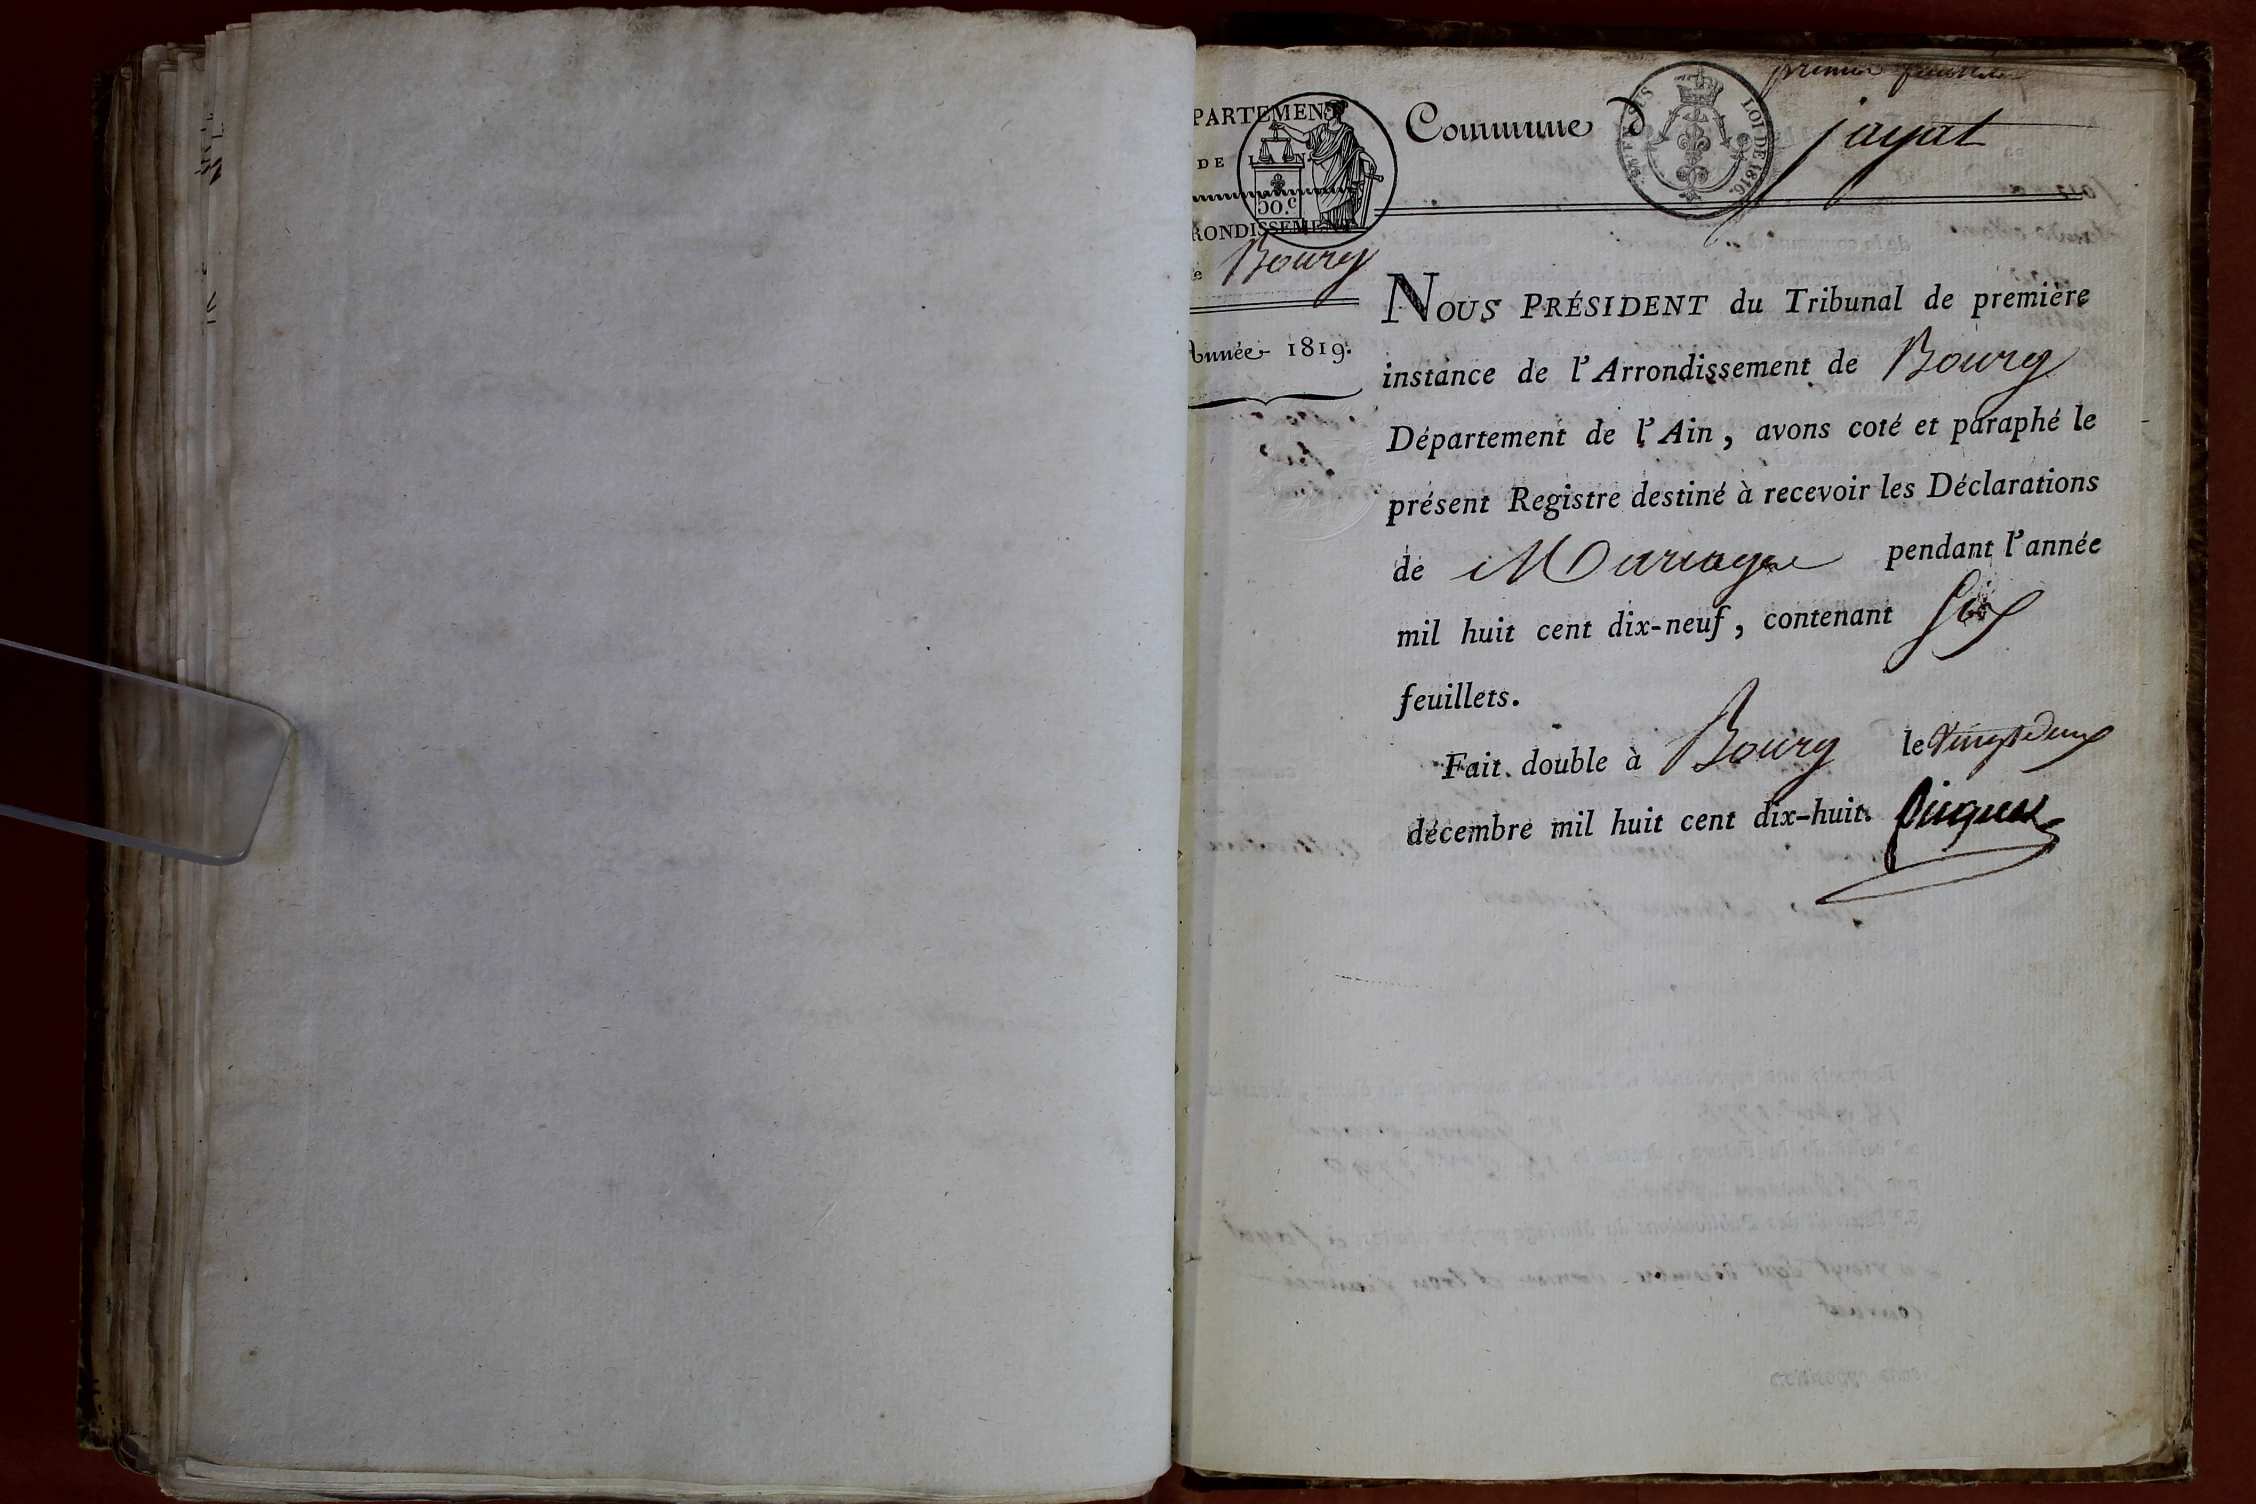 premier feuillet
PARTEMENT
DE L'AIN
50.c
RONDISSEMENT
e Bourg
Année 1819.
Commune d
LOI DE 1816.
jayat
NOUS PRÉSIDENT du Tribunal de premiére
instance de l'Arrondissement de Bourg
Département de l'Ain, avons coté et paraphé le
présent Registre destiné à recevoir les Déclarations
de Mariage pendant l'année
mil huit cent dix-neuf, contenant Six
feuillets.
Fait double à Bourg le Vingt deux
décembre mil huit cent dix-huit.